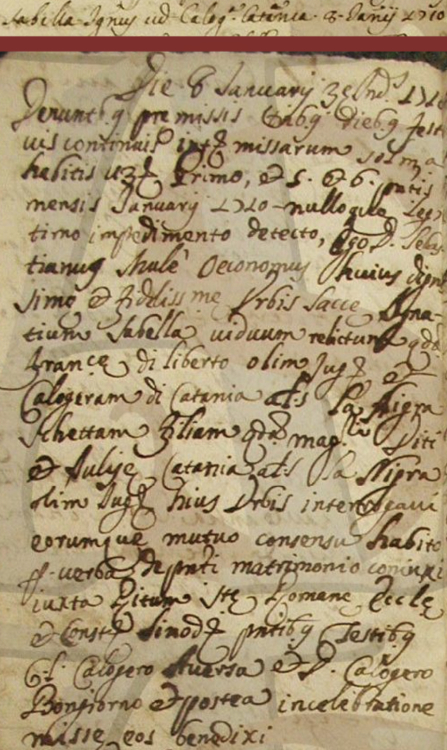 Sabella Ignus cum Caloga Catania 8 Januarij 1710
Die 8 Januarij 3e Indis 1710
Denuntbq premissis tribq diebq fest
vis continuis intq missarum solmia
habitis vzq Primo, et 5. et 6. pntis
mensis Januarij 1710 nulloque legi
timo impedimento detecto, Ego D. Sebas
tianus Mulè Oeconomus huius digni
sime et fidelissme Urbis Sacce Igna-
tium Sabella viduum relictum qda
France di liberto olim Jugq et
Calogeram di Catania als la Nigra
Schettam filiam qda mag. Viti
et Julije Catania als la Nigra
olim Jugq huius Urbis interrogavi
eorumque mutuo consensu habito
p verba de pnti matrimonio coniunxi
iuxta Ritum Ste Romane Eccle
et Const Sinodq pntibq Testibq
Cl. Calogero Aversa et D. Calogero
Bongiorno et postea in celebratione
misse eos benedixi